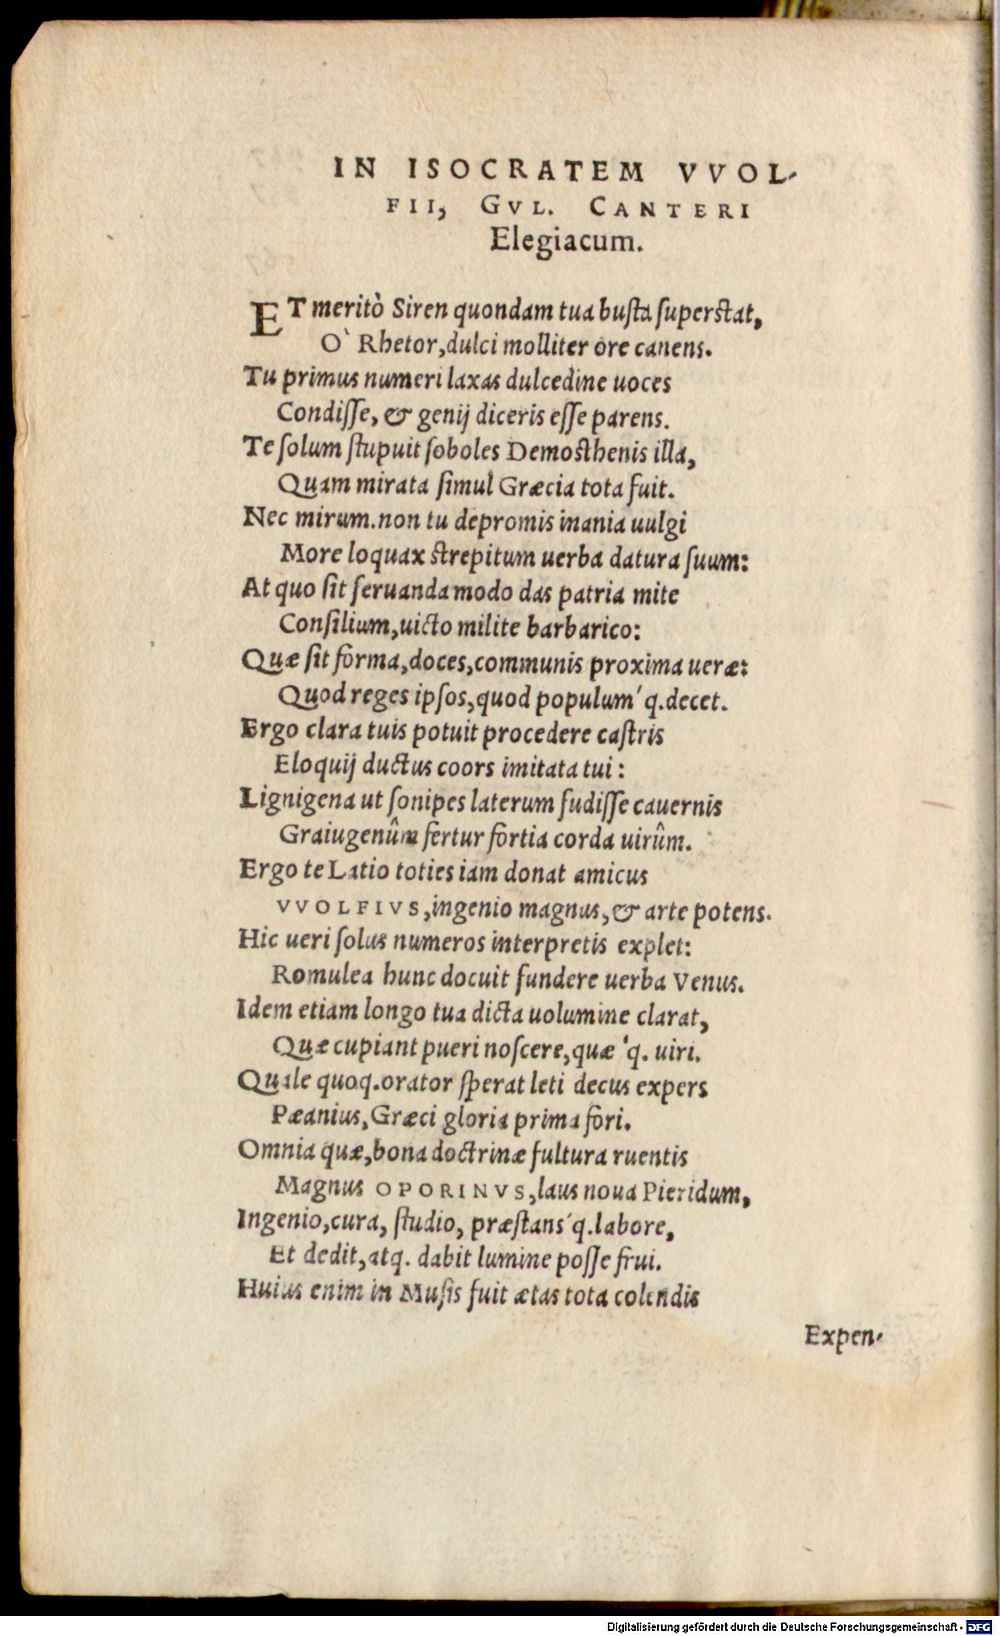 IN ISOCRATEM VVOL-
FII, GVL. CANTERI
Elegiacum.
ET meritò Siren quondam tua busta superstat,
O` Rhetor, dulci molliter ore canens.
Tu primus numeri laxas dulcedine uoces
Condisse, & genij diceris esse parens.
Te solum stupuit soboles Demosthenis illa,
Quam mirata simul Græcia tota fuit.
Nec mirum. non tu depromis inania uulgi
More loquax strepitum uerba datura suum:
At quo sit seruanda modo das patria mite
Consilium, uicto milite barbarico:
Quæ sit forma, doces, communis proxima ueræ:
Quod reges ipsos, quod populum´q. decet.
Ergo clara tuis potuit procedere castris
Eloquij ductus coors imitata tui:
Lignigena ut sonipes laterum fudisse cauernis
Graiugenûm fertur fortia corda uirûm.
Ergo te Latio toties iam donat amicus
VVOLFIVS, ingenio magnus, & arte potens.
Hic ueri solus numeros interpretis explet:
Romulea hunc docuit fundere uerba Venus.
Idem etiam longo tua dicta uolumine clarat,
Quæ cupiant pueri noscere, quæ ´q. uiri.
Quale quoq. orator sperat leti decus expers
Pæanius, Græci gloria prima fori.
Omnia quæ, bona doctrinæ fultura ruentis
Magnus OPORINVS, laus noua Pieridum,
Ingenio, cura, studio, præstans´q. labore,
Et dedit, atq. dabit lumine posse frui.
Huius enim in Musis fuit ætas tota colendis
Expen-
Digitalisierung gefördert durch die Deutsche Forschungsgemeinschaft - DFG